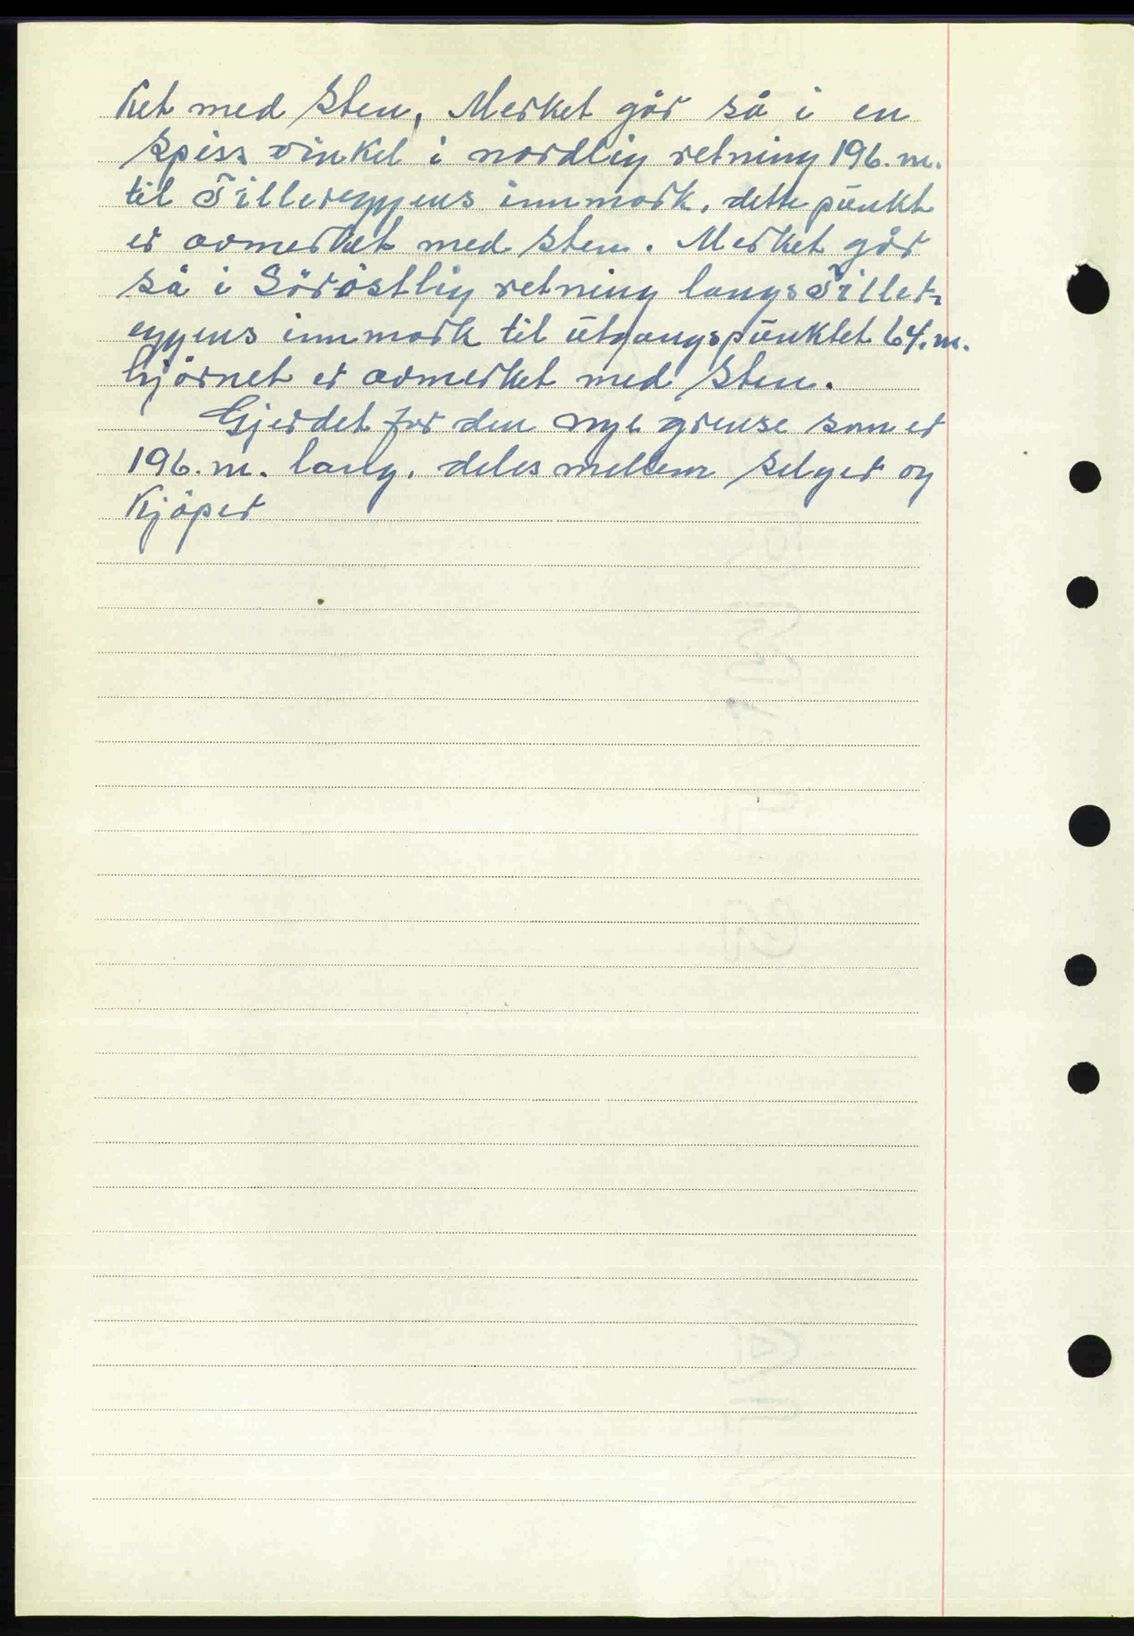 ket med sten, Merket går så i en
spiss vinkel i nordlig retning 196.m.
til Tillereggens innmark. dette punkt
er avmerket med sten. Merket går
så i Sörøstlig retning langs Tiller-
eggens innmark til utgangspunktet 64.m.
hjörnet er avmerket med sten.
Gjerdet for den nye grense som er
196.m. lang. deles mellem selger og
Kjöper